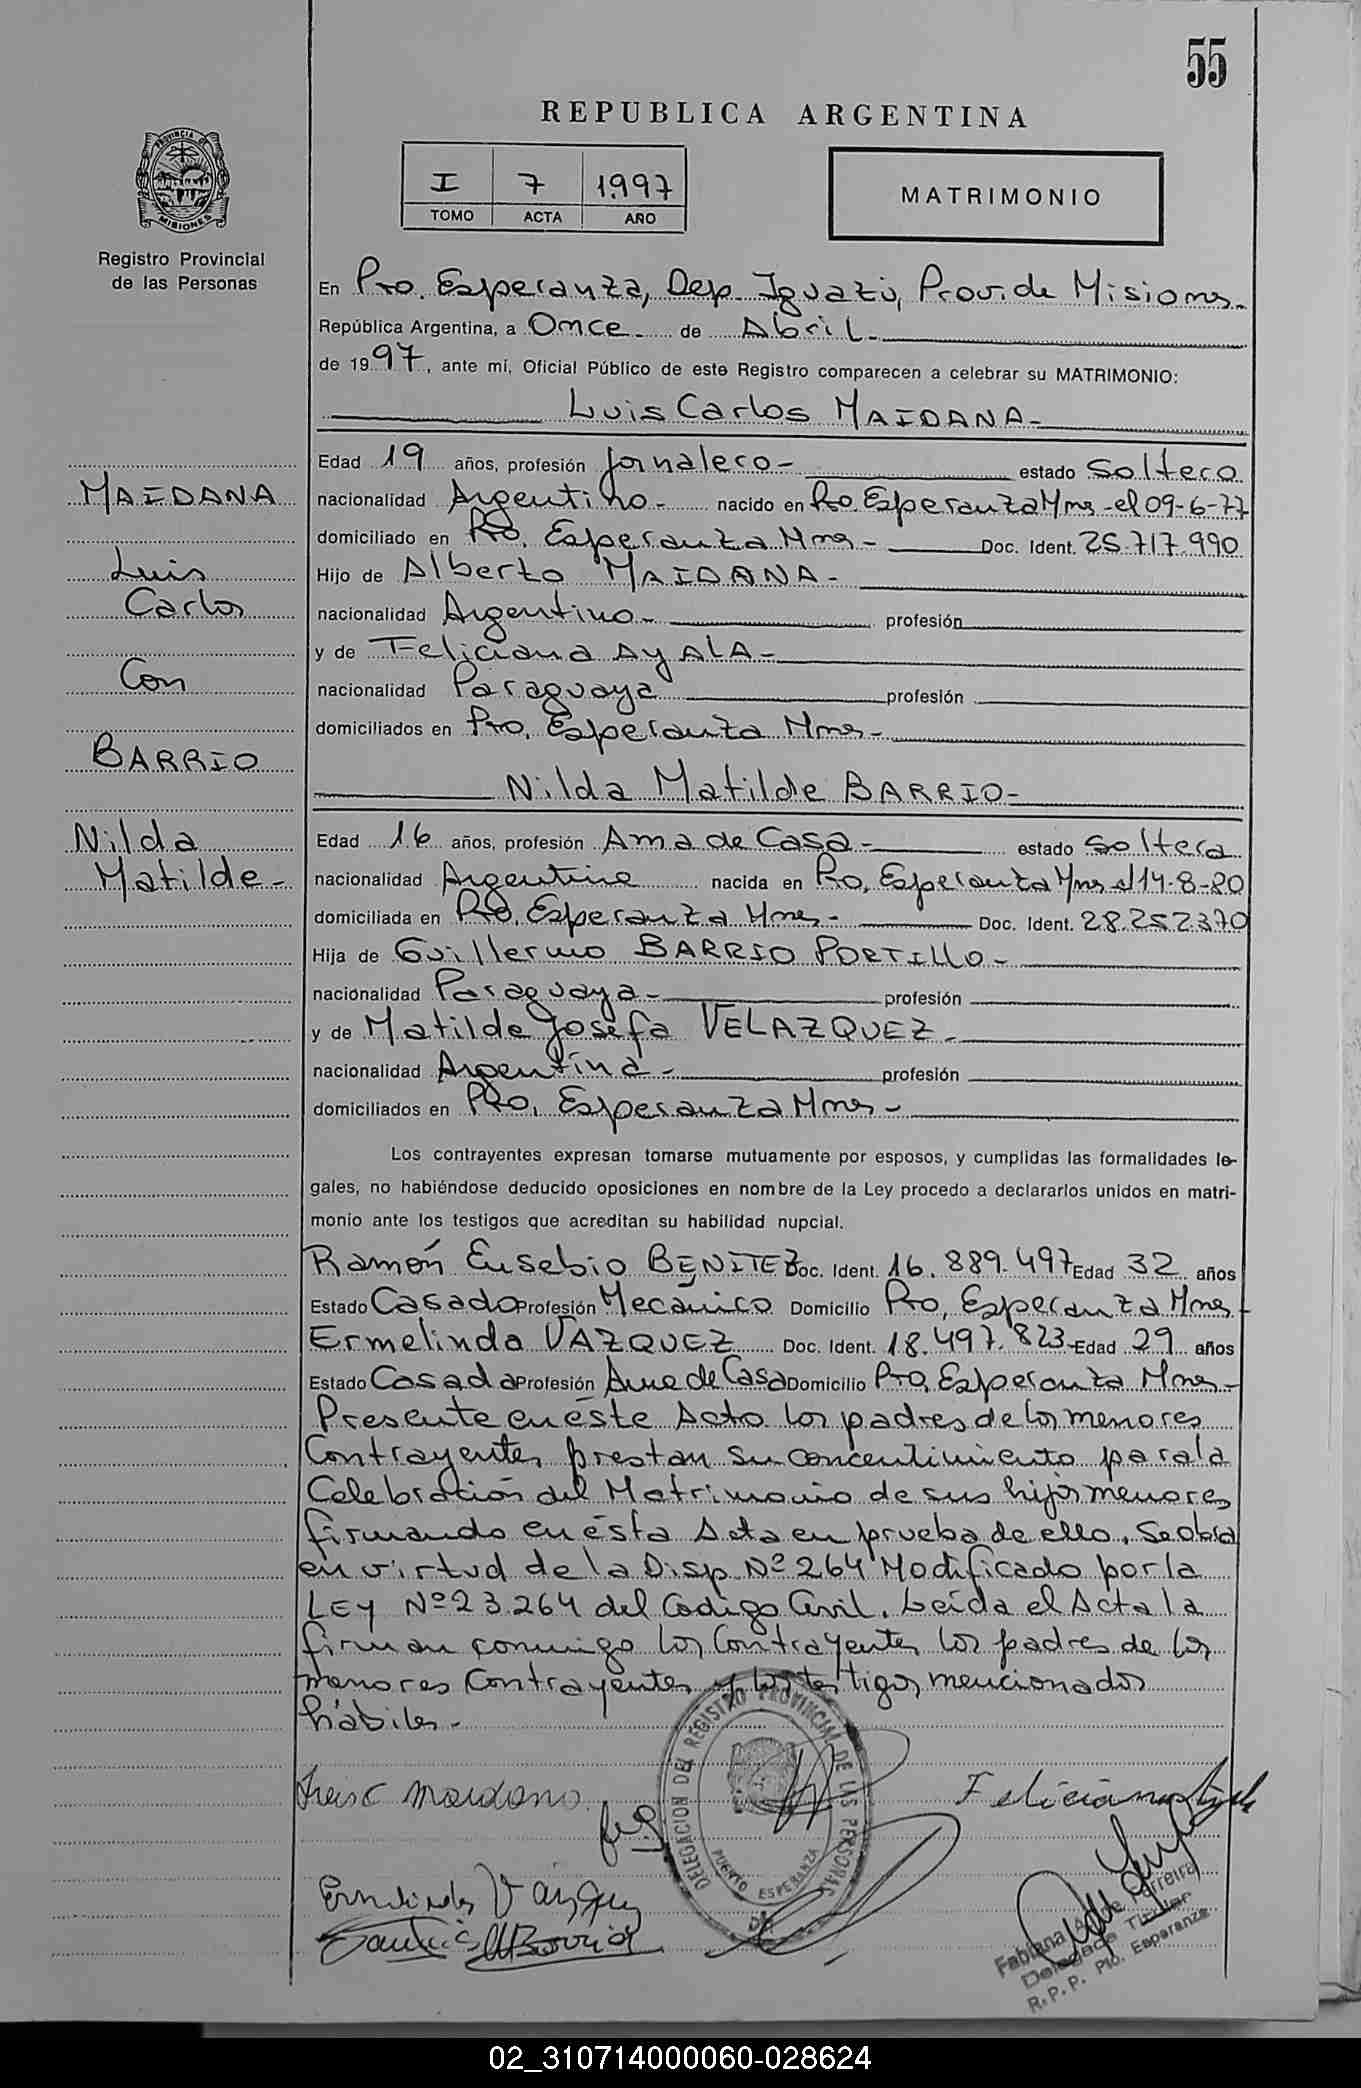 55
REPUBLICA ARGENTINA
I 7 1997
TOMO ACTA AÑO
MATRIMONIO
PROVINCIA DE MISIONES
Registro Provincial
de las Personas
En Pto. Esperanza, Dep. Iguazú, Prov. de Misiones.
República Argentina, a Once de Abril.
de 1997, ante mí, Oficial Público de este Registro comparecen a celebrar su MATRIMONIO:
Luis Carlos MAIDANA-
Edad 19 años, profesión jornalero- estado soltero
nacionalidad Argentino- nacido en Pto. Esperanza Mnes-el 09-6-77
domiciliado en Pto. Esperanza Mnes- Doc. Ident. 25.717.990
Hijo de Alberto MAIDANA-
nacionalidad Argentino- profesión
y de Feliciana AyALA-
nacionalidad Paraguaya profesión
domiciliados en Pto. Esperanza Mnes-
Nilda Matilde BARRIO-
Edad 16 años, profesión Ama de Casa- estado soltera
nacionalidad Argentina nacida en Pto. Esperanza Mnes el 14-8-80
domiciliada en Pto. Esperanza Mnes- Doc. Ident. 28.252.370
Hija de Guillermo BARRIO PORTILLO-
nacionalidad Paraguaya- profesión
y de Matilde Josefa VELAZQUEZ-
nacionalidad Argentina- profesión
domiciliados en Pto. Esperanza Mnes-
MAIDANA
Luis
Carlos
Con
BARRIO
Nilda
Matilde-
Los contrayentes expresan tomarse mutuamente por esposos, y cumplidas las formalidades le-
gales, no habiéndose deducido oposiciones en nombre de la Ley procedo a declararlos unidos en matri-
monio ante los testigos que acreditan su habilidad nupcial.
Ramón Eusebio BENITEZ Doc. Ident. 16.889.497 Edad 32 años
Estado Casado Profesión Mecánico Domicilio Pto. Esperanza Mnes-
Ermelinda VAZQUEZ Doc. Ident. 18.497.823- Edad 29 años
Estado Casada Profesión Ama de Casa Domicilio Pto. Esperanza Mnes-
Presente en éste Acto los padres de los menores
Contrayentes prestan su concentimiento para la
Celebración del Matrimonio de sus hijos menores
firmando en ésta Acta en prueba de ello. Se obra
en virtud de la Disp. Nº 264 Modificado por la
LEy Nº 23.264 del Codigo Civil. Leída el Acta la
firman conmigo los Contrayentes los padres de los
menores Contrayentes y los testigos mencionados
hábiles.-
DELEGACION DEL REGISTRO PROVINCIAL DE LAS PERSONAS
PUERTO ESPERANZA
Luis C Maidana
Feliciana Ayala
Ermelinda Vázquez
Fabiana A. de Ferreira
Delegada Titular
R. P. P. Pto. Esperanza
02_310714000060-028624